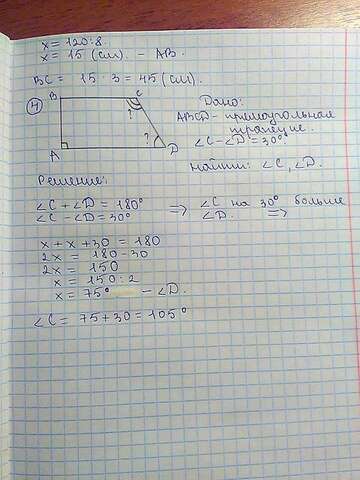 x = 120:8.
x = 15 (см). – AB.
BC = 15 · 3 = 45 (см).
4
B
C
?
?
A
D
Дано:
ABCD – прямоугольная
трапеция.
∠C – ∠D = 30°
Найти: ∠C, ∠D.
Решение:
∠C + ∠D = 180°
∠C – ∠D = 30°
⇒ ∠C на 30° больше
∠D. ⇒
x + x + 30 = 180
2x = 180 – 30
2x = 150
x = 150 : 2
x = 75° – ∠D.
∠C = 75 + 30 = 105°